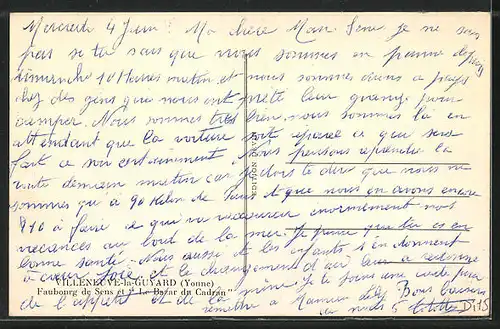 Mercredi 4 Juin! Ma chère Man. Je ne sais
pas si tu sais que nous sommes en panne depuis
dimanche 10 Heures matin et nous sommes dans a pays
chez des gens qui nous ont prêté leur grange pour
camper. Nous sommes très bien, nous sommes là en
attendant que la voiture soit réparée ce que sera
fait ce soir certainement. Nous pensons reprendre la
route demain matin car je dois te dire que nous ne
sommes qu'à 90 kilm de et que nous en avons encore
810 à faire ce qui va raccourcir énormément nos
vacances au bord de la mer. Je pense que tu es en
bonne santé. Nous aussi et les enfants s'en donnent
à cœur joie et le changement d'air leur a redonné
de l'appétit et de la mine. Je te ferai une carde
Bons baisers
de nous 5
VILLENEUVE-la-GUYARD (Yonne)
Faubourg de Sens et "Le Bazar du Cadran"
EDITION
D115